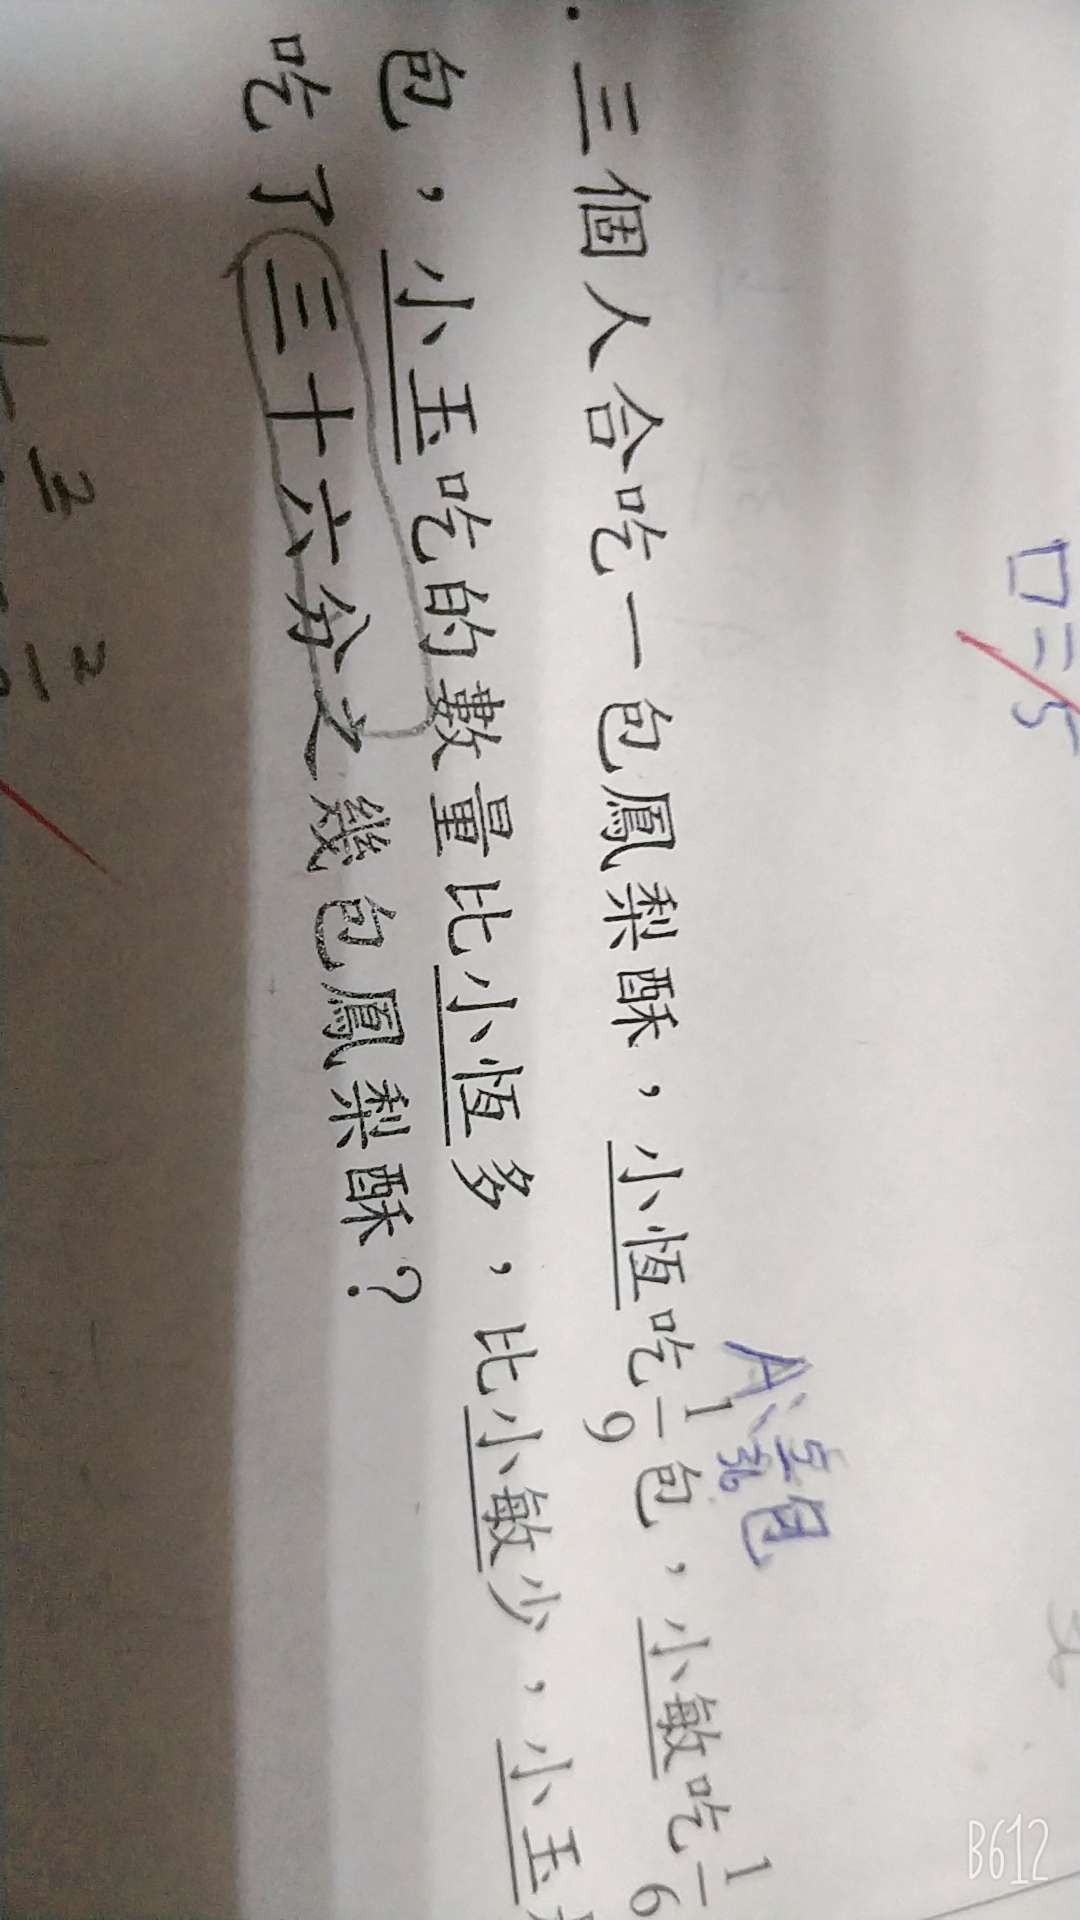 □=5
A: 5/36 包
三個人合吃一包鳳梨酥，小恆吃1/9包，小敏吃1/6
包，小玉吃的數量比小恆多，比小敏少，小玉
吃了三十六分之幾包鳳梨酥？
B612